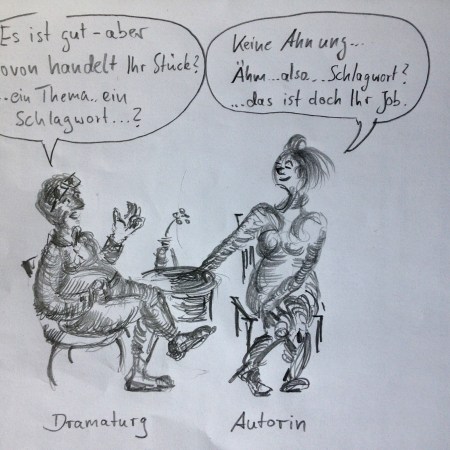 Es ist gut - aber
ovon handelt Ihr Stück?
..ein Thema..ein
Schlagwort...?
Keine Ahnung...
Ähm...also...Schlagwort?
...das ist doch Ihr Job.
Dramaturg
Autorin